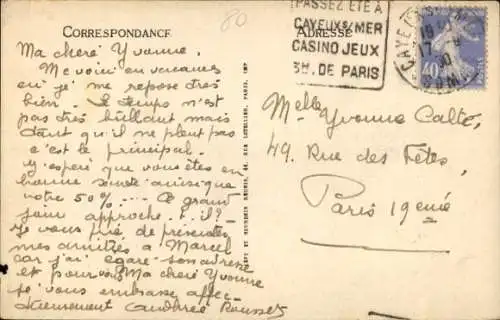 CORRESPONDANCE
80
ADRESSE
PASSEZ ÉTÉ A
CAYEUX S/ MER
CASINO JEUX
3H. DE PARIS
CAYEUX
17
40
Ma cheré Yvonne.
Me voici en vacances
où je me repose très
bien. Le temps n'est
pas très brillant mais
tant qu'il ne pleut pas
c'est le principal.
J'y espère que vous êtes en
bonne santé ainsi que
votre 50% .... Ce grand
jour approche t. il?
Je vous prie de présenter
mes amitiés à Marcel
car j'ai égaré son adresse
et pour vous Ma cheré Yvonne
je vous embrasse affec-
tueusement Candhrée Rousset
Melle Yvonne Calté,
49, Rue des Fêtes,
Paris 19eme